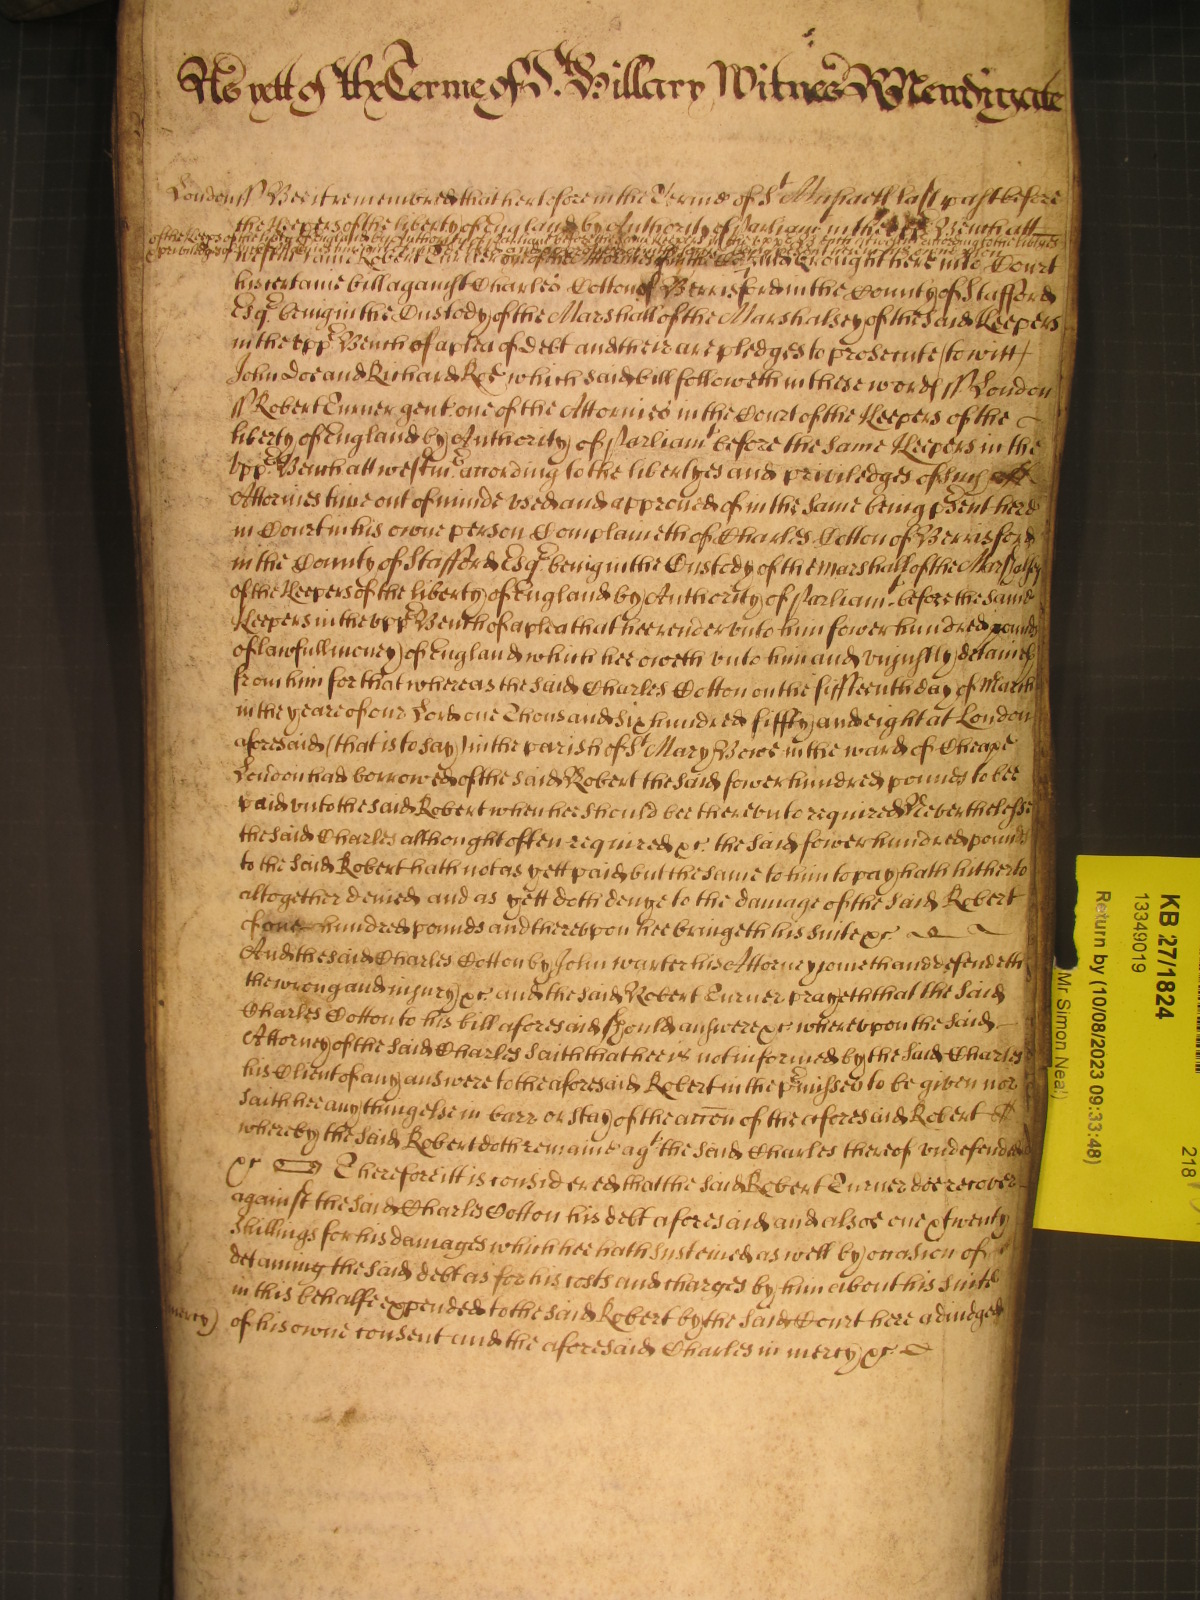 As yett of the Terme of St. Hillary Witnes R Newdigate
London ss Bee it remembred that heretofore in the Terme of St Michaell last past before
the Keepers of the liberty of England by Authority of Parliamt in the upp Bench att
of the Keeps of the liberty of England by Authority of Parliamt before the same Keepers in the upper Bench att westmr according to the libtyes
westmr came Robert Turner gent one of the Attornies in the Court and brought here into Court
his certaine bill against Charles Cotton of Berrisford in the County of Stafford
Esqr being in the Custody of the Marshall of the Marshalsey of the said Keepers
in the upp Bench of a plea of Debt and their are pledges to prosecute (to witt)
John Doe and Richard Roe which said bill followeth in these words ss London
ss Robert Turner gent one of the Attornies in the Court of the Keepers of the
liberty of England by Authority of Parliamt before the same Keepers in the
upp Bench att westmr according to the libertyes and priviledges of such
Attornies time out of minde vsed and approued of in the same being psent here
in Court in his owne person Complaineth of Charles Cotton of Berrisford
in the County of Stafford Esqr being in the Custody of the marshall of the Marshalsey
of the Keepers of the liberty of England by Authority of Parliamt before the same
Keepers in the vpp Bench of a plea that hee render vnto him fower hundred pounds
of lawfull money of England which hee oweth vnto him and vniustly detaines
from him for that whereas the said Charles Cotton on the fifteenth day of March
in the yeare of our Lord one Thousand six hundred fiffty and eight at London
aforesaid (that is to say) in the parish of St Mary Bowe in the ward of Cheape
London had borrowed of the said Robert the said fower hundred pounds to bee
paid vnto the said Robert when hee should bee therevnto required Neverthelesse
the said Charles althought often required &c the said fower hundred pounds
to the said Robert hath not as yett paid but the same to him to pay hath hitherto
altogether denied and as yett doth denye to the damage of the said Robert
of one hundred pounds and therevpon hee bringeth his suite &c
And the said Charles Cotton by John warter his Attorney cometh and defendeth
the wrong and iniury &c and the said Robert Turner prayeth that the said
Charles Cotton to his bill aforesaid should answere &c wherevpon the said
Attorney of the said Charles saith that hee is not informed by the said Charles
his Client of any answere to the aforesaid Robert in the pmisses to be given nor
saith hee any thing else in barr or stay of the accon of the aforesaid Robert
whereby the said Robert doth remaine agt the said Charles thereof vndefended
&c Therefore itt is considered that the said Robert Turner doe recover
against the said Charles Cotton his debt aforesaid and alsoe one & twenty
shillings for his damages which hee hath susteined as well by occasion of
detaining the said debt as for his costs and charges by him about his suite
in this behalfe expended to the said Robert by the said Court here adiudged
mercy) of his owne consent and the aforesaid Charles in mercy &c
KB 27/1824
13349019
Return by (10/08/2023 09:33:48)
Mr Simon Neal
218